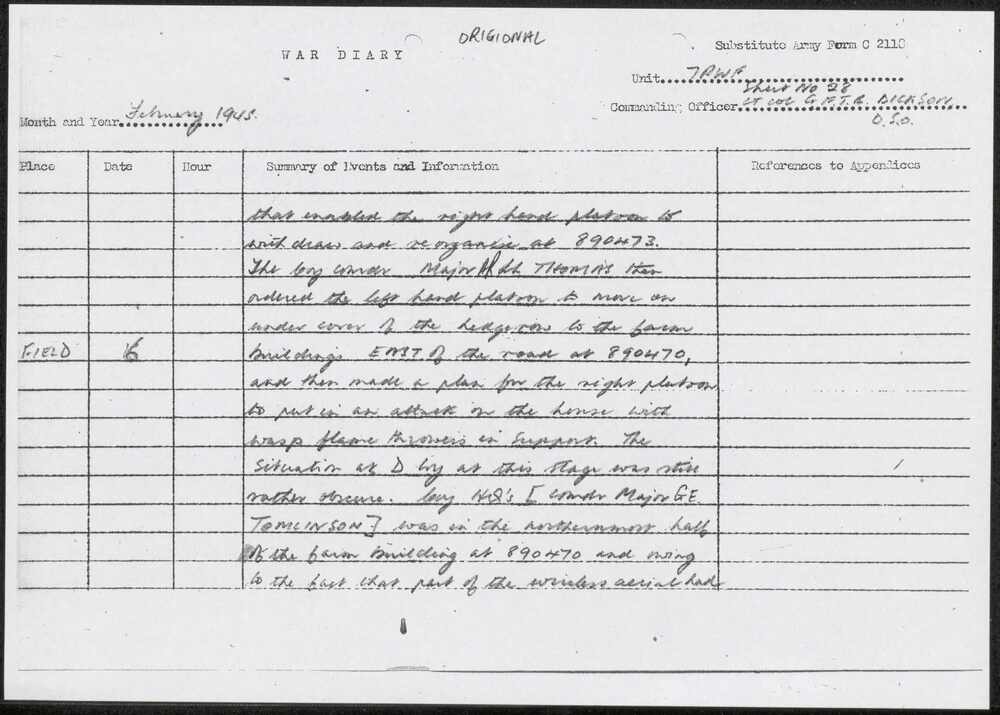 ORIGIONAL
WAR DIARY
Substitute Army Form C 2118
Unit 7RWF
Sheet No 28
Commanding Officer Lt Col G.F.T.B. DICKSON
D.S.O.
Month and Year February 1945.
Place Date Hour Summary of Events and Information References to Appendices
that enabled the right hand platoon to
withdraw and reorganise at 890473.
The Coy Comdr Major THOMAS then
ordered the left hand platoon to move on
under cover of the hedgerow to the farm
FIELD 16 buildings EAST of the road at 890470,
and then made a plan for the right platoon
to put in an attack on the house with
wasp flame throwers in support. The
situation at D Coy at this stage was still
rather obscure. Coy HQ's [Comdr Major G.E.
TOMLINSON] was in the northernmost half
of the farm building at 890470 and owing
to the fact that part of the wireless aerial had